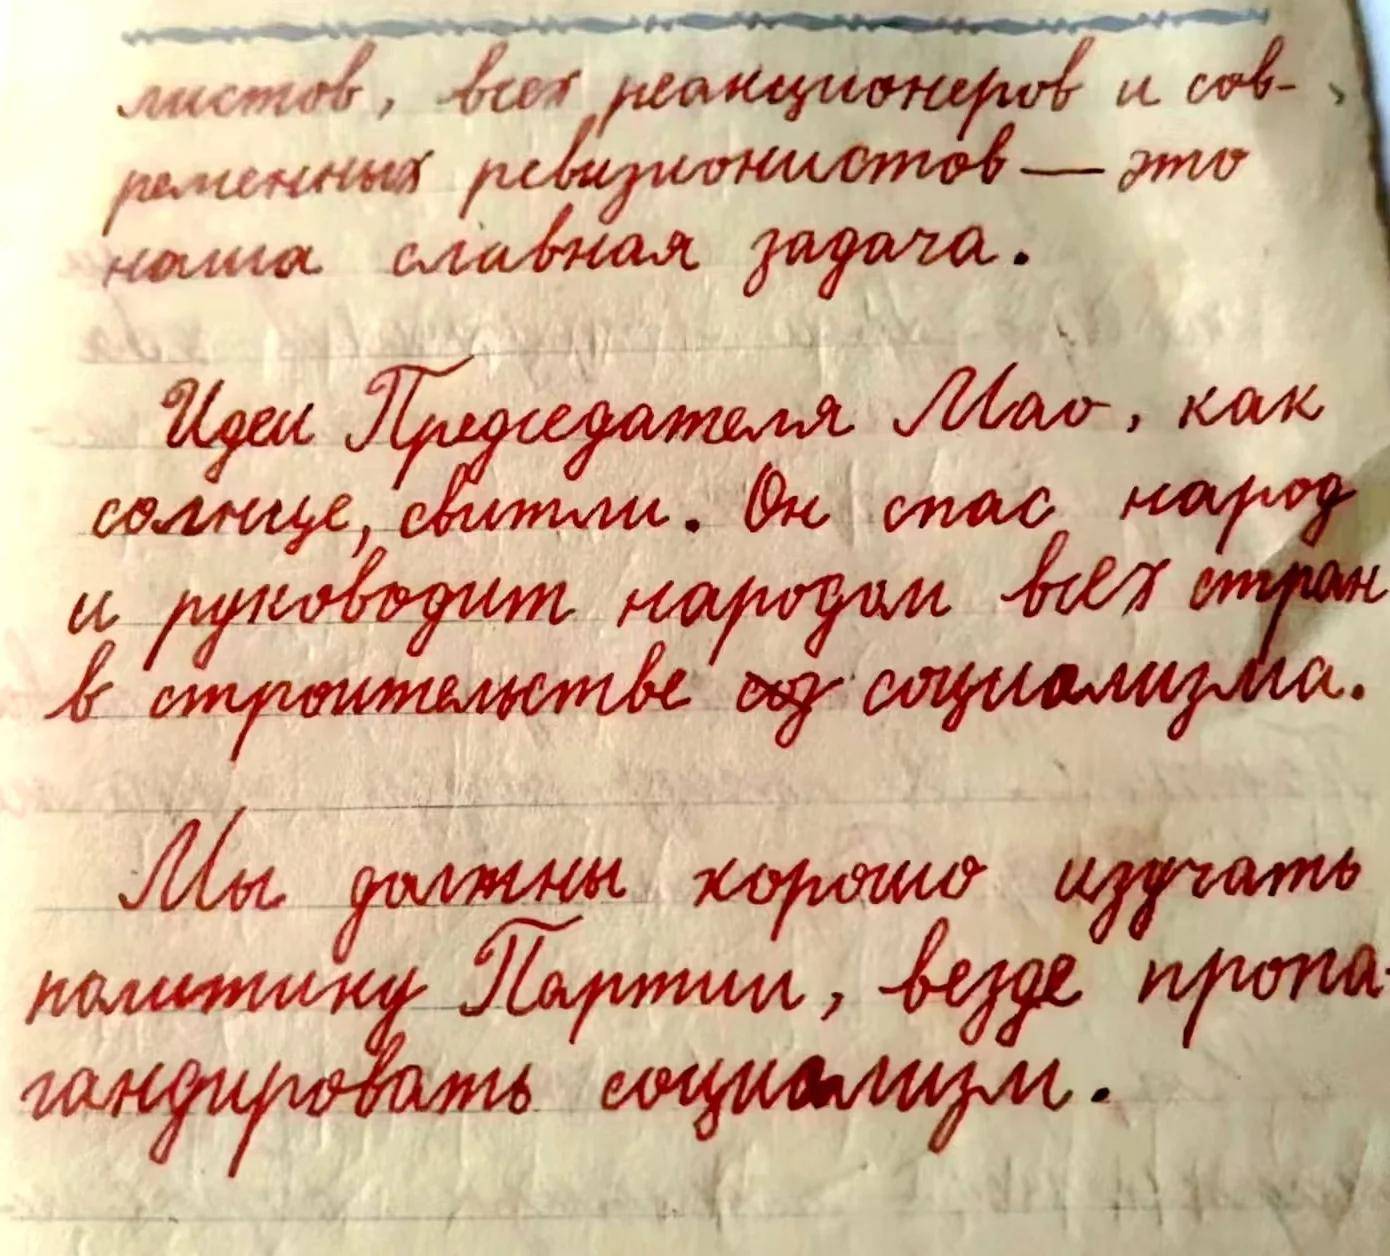 листов, всех реакционеров и сов-
ременных ревизионистов — это
наша славная задача.
Идеи Председателя Мао, как
солнце, свитли. Он спас народ
и руководит народом всех стран
в строительстве соз социализма.
Мы должны хорошо изучать
политику Партии, везде пропа-
гандировать социализм.